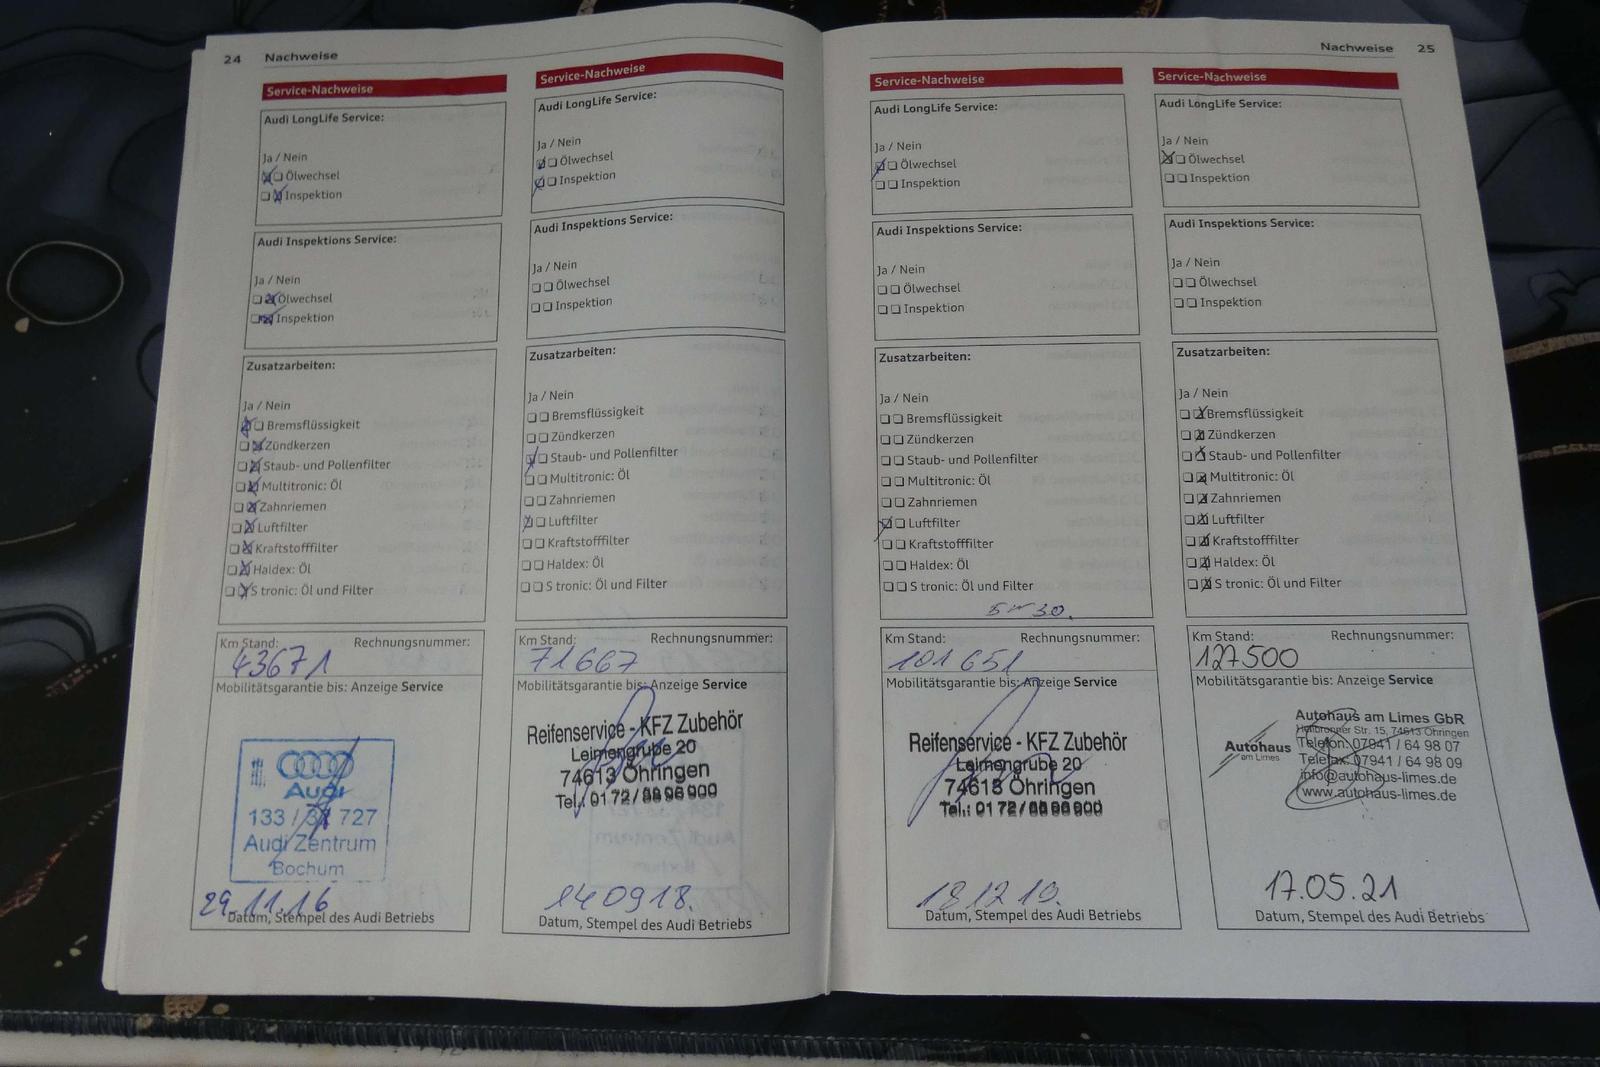 24 Nachweise
Service-Nachweise
Audi LongLife Service:
Ja / Nein
Ölwechsel
Inspektion
Audi Inspektions Service:
Ja / Nein
Ölwechsel
Inspektion
Zusatzarbeiten:
Ja / Nein
Bremsflüssigkeit
Zündkerzen
Staub- und Pollenfilter
Multitronic: Öl
Zahnriemen
Luftfilter
Kraftstofffilter
Haldex: Öl
S tronic: Öl und Filter
Km Stand: Rechnungsnummer:
43671
Mobilitätsgarantie bis: Anzeige Service
Audi
133 / 31 727
Audi Zentrum
Bochum
29.11.16
Datum, Stempel des Audi Betriebs
Service-Nachweise
Audi LongLife Service:
Ja / Nein
Ölwechsel
Inspektion
Audi Inspektions Service:
Ja / Nein
Ölwechsel
Inspektion
Zusatzarbeiten:
Ja / Nein
Bremsflüssigkeit
Zündkerzen
Staub- und Pollenfilter
Multitronic: Öl
Zahnriemen
Luftfilter
Kraftstofffilter
Haldex: Öl
S tronic: Öl und Filter
Km Stand: Rechnungsnummer:
71667
Mobilitätsgarantie bis: Anzeige Service
Reifenservice - KFZ Zubehör
Leimengrube 20
74613 Öhringen
Tel.: 01 72 /
140918.
Datum, Stempel des Audi Betriebs
Nachweise 25
Service-Nachweise
Audi LongLife Service:
Ja / Nein
Ölwechsel
Inspektion
Audi Inspektions Service:
Ja / Nein
Ölwechsel
Inspektion
Zusatzarbeiten:
Ja / Nein
Bremsflüssigkeit
Zündkerzen
Staub- und Pollenfilter
Multitronic: Öl
Zahnriemen
Luftfilter
Kraftstofffilter
Haldex: Öl
S tronic: Öl und Filter
5W30.
Km Stand: Rechnungsnummer:
101651
Mobilitätsgarantie bis: Anzeige Service
Reifenservice - KFZ Zubehör
Leimengrube 20
74613 Öhringen
Tel.: 01 72 /
181219.
Datum, Stempel des Audi Betriebs
Service-Nachweise
Audi LongLife Service:
Ja / Nein
Ölwechsel
Inspektion
Audi Inspektions Service:
Ja / Nein
Ölwechsel
Inspektion
Zusatzarbeiten:
Ja / Nein
Bremsflüssigkeit
Zündkerzen
Staub- und Pollenfilter
Multitronic: Öl
Zahnriemen
Luftfilter
Kraftstofffilter
Haldex: Öl
S tronic: Öl und Filter
Km Stand: Rechnungsnummer:
127500
Mobilitätsgarantie bis: Anzeige Service
Autohaus
am Limes
Autohaus am Limes GbR
Heilbronner Str. 15, 74613 Öhringen
Telefon: 07941 / 64 98 07
Telefax: 07941 / 64 98 09
info@autohaus-limes.de
www.autohaus-limes.de
17.05.21
Datum, Stempel des Audi Betriebs